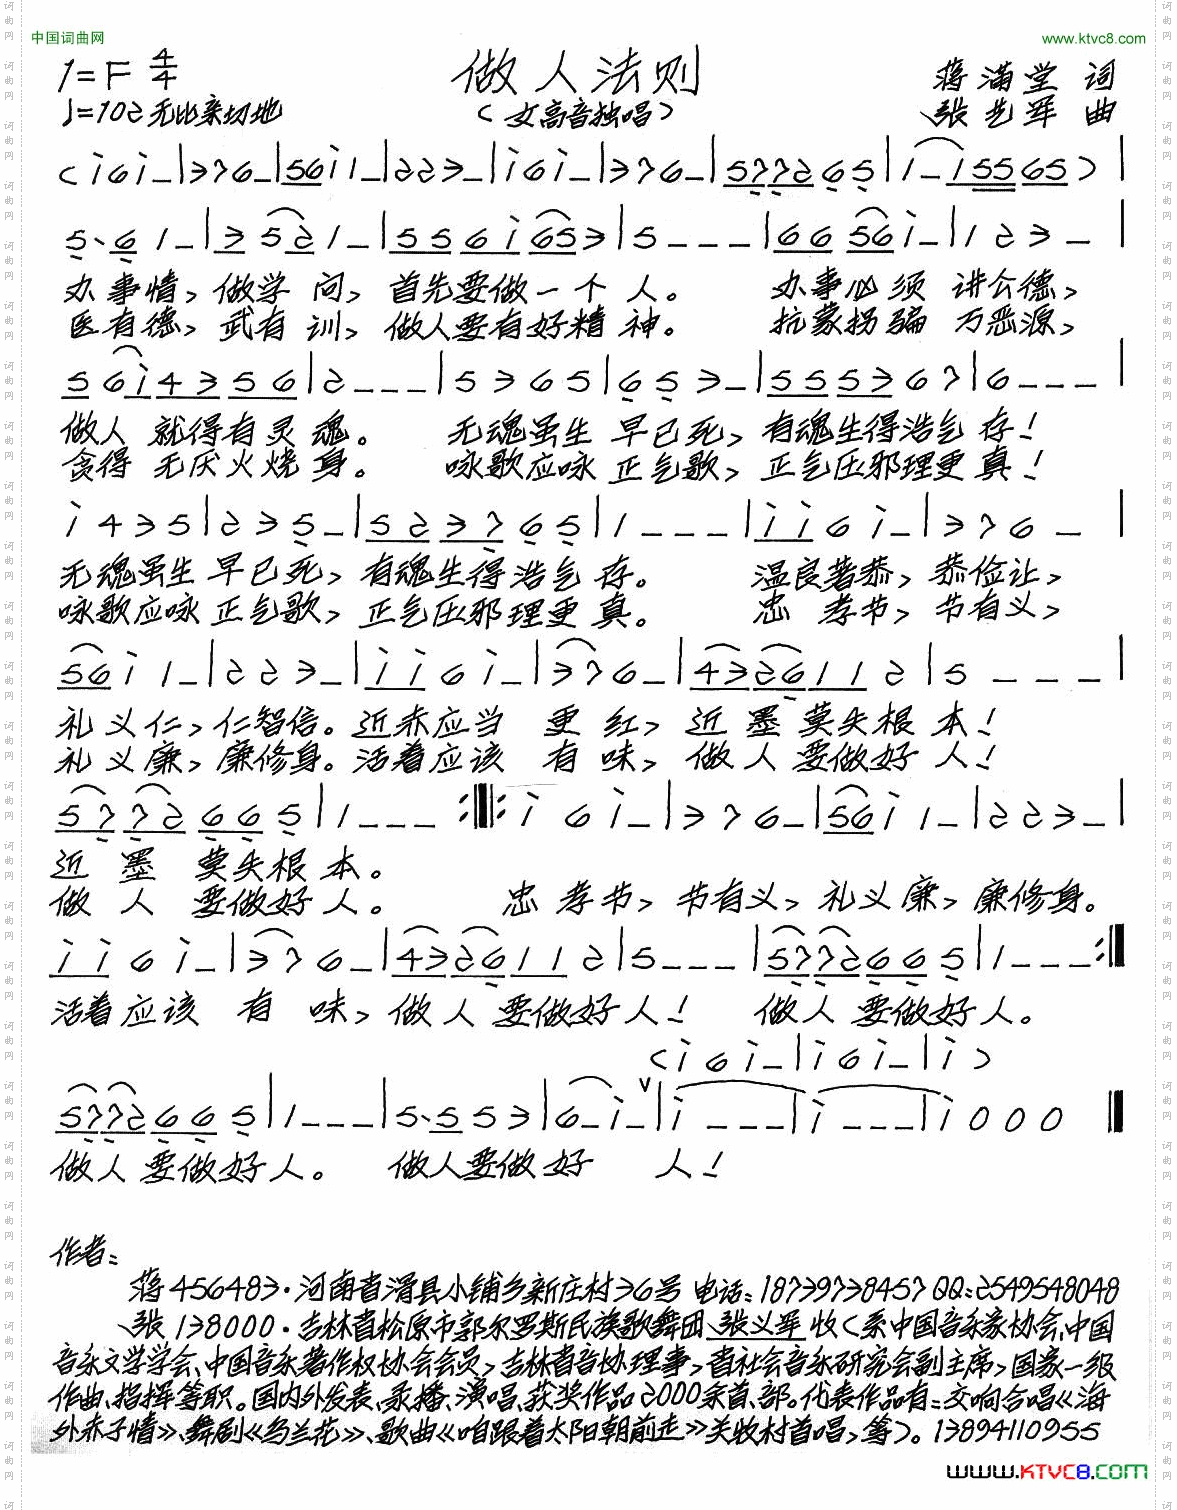 中国词曲网
www.ktvc8.com
1=F 4/4
做人法则
蒋满堂 词
♩=102 无比亲切地
(女高音独唱)
张艺军 曲
(i 6 i - | 3 7 6 - | 5 6 i 1 - | 2 2 3 - | i 6 i - | 3 7 6 - | 5 7 7 2 6 5 | 1 - 1 5 5 6 5) |
5· 6 1 - | 3 5 2 1 - | 5 5 6 i 6 5 3 | 5 - - - | 6 6 5 6 i - | 1 2 3 - |
办事情, 做学 问, 首先要做一个 人。 办事必须 讲公德,
医有德, 武有 训, 做人要有好精 神。 抗蒙拐骗 万恶源,
5 6 i 4 3 5 6 | 2 - - - | 5 3 6 5 | 6 5 3 - | 5 5 5 3 6 7 | 6 - - - |
做人 就得有灵 魂。 无魂虽生 早已死, 有魂生得浩气 存!
贪得 无厌火烧 身。 咏歌应咏 正气歌, 正气压邪理更 真!
i 4 3 5 | 2 3 5 - | 5 2 3 7 6 5 | 1 - - - | i i 6 i - | 3 7 6 - |
无魂虽生 早已死, 有魂生得浩气 存。 温良著恭, 恭俭让,
咏歌应咏 正气歌, 正气压邪理更 真。 忠 孝节, 节有义,
5 6 i 1 - | 2 2 3 - | i i 6 i - | 3 7 6 - | 4 3 2 6 1 1 2 | 5 - - - |
礼义仁, 仁智信。 近赤应当 更 红, 近 墨 莫失根 本!
礼义廉, 廉修身。 活着应该 有 味, 做 人 要做好 人!
5 7 7 2 6 6 5 | 1 - - - :‖: i 6 i - | 3 7 6 - | 5 6 i 1 - | 2 2 3 - |
近 墨 莫失根 本。
做 人 要做好 人。 忠 孝节, 节有义, 礼义廉, 廉修身。
i i 6 i - | 3 7 6 - | 4 3 2 6 1 1 2 | 5 - - - | 5 7 7 2 6 6 5 | 1 - - - :‖
活着应该 有 味, 做 人 要做好 人! 做人 要做好 人。
(i 6 i - | i 6 i - | i)
5 7 7 2 6 6 5 | 1 - - - | 5· 5 5 3 | 6 - i - ∨ | i - - - | i - - - | i 0 0 0 ‖
做人 要做好 人。 做人要做 好 人!
作者:
蒋456483·河南省滑县小铺乡新庄村36号 电话:18739738457 QQ:2549548048
张138000·吉林省松原市郭尔罗斯民族歌舞团张义军 收(系中国音乐家协会、中国
音乐文学学会、中国音乐著作权协会会员,吉林省音协理事,省社会音乐研究会副主席,国家一级
作曲、指挥等职。国内外发表、录播、演唱、获奖作品2000余首、部。代表作品有:交响合唱《海
外赤子情》、舞剧《乌兰花》、歌曲《咱跟着太阳朝前走》关牧村首唱,等)。13894110955
www.KTVC8.COM